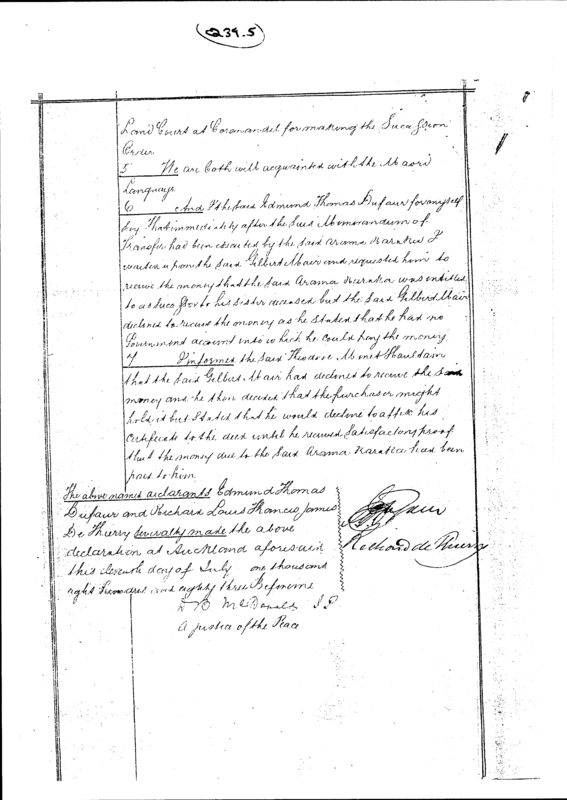 C239.5
Land Court at Coromandel for making the Succession
Order
5 We are both well acquainted with the Maori
Language
6 And I the said Edmund Thomas Dufaur for myself
say That immediately after the said Memorandum of
Transfer had been executed by the said Arama Karaka I
waited upon the said Gilbert Mair and requested him to
receive the money that the said Arama Karaka was entitled
to as successor to his sister deceased but the said Gilbert Mair
declined to receive the money as he stated that he had no
Government account into which he could pay the money
7 I informed the said Theodore Minet Haultain
that the said Gilbert Mair had declined to receive the
money and he then decided that the purchaser might
hold it but stated that he would decline to affix his
certificate to the deed until he received satisfactory proof
that the money due to the said Arama Karaka had been
paid to him
The above named declarants Edmund Thomas
Dufaur and Richard Louis Francis James
De Thierry severally made the above
declaration at Auckland aforesaid
this eleventh day of July one thousand
eight hundred and eighty three Before me
Dufaur
Richard de Thierry
McDonald J.P.
A Justice of the Peace